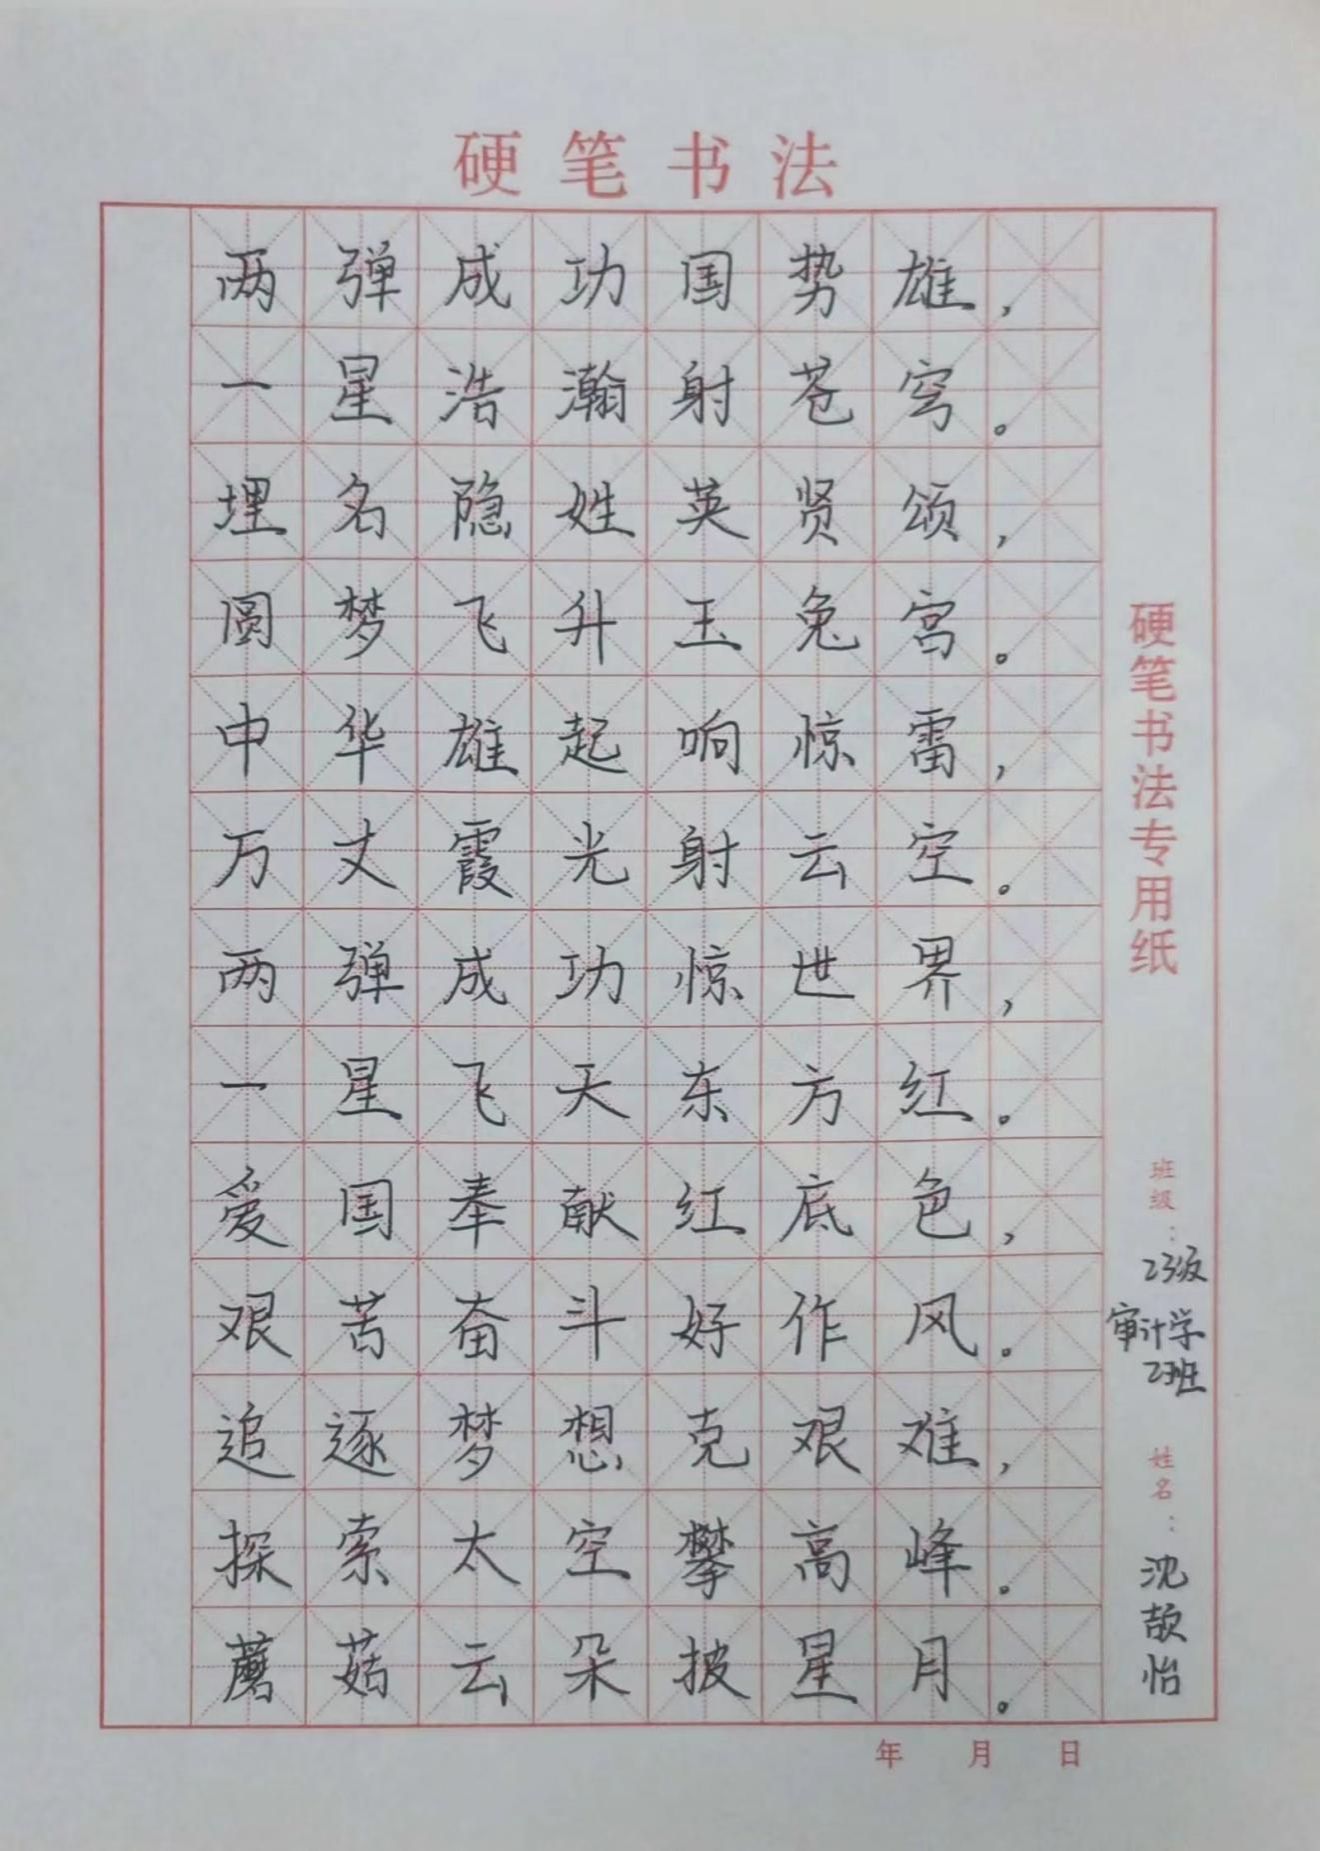 硬笔书法
两弹成功国势雄，
一星浩瀚射苍穹。
埋名隐姓英贤颂，
圆梦飞升玉兔宫。
中华雄起响惊雷，
万丈霞光射云空。
两弹成功惊世界，
一星飞天东方红。
爱国奉献红底色，
艰苦奋斗好作风。
追逐梦想克艰难，
探索太空攀高峰。
蘑菇云朵披星月。
硬笔书法专用纸
班级：
23级
审计学
2班
姓名：
沈颉怡
年 月 日